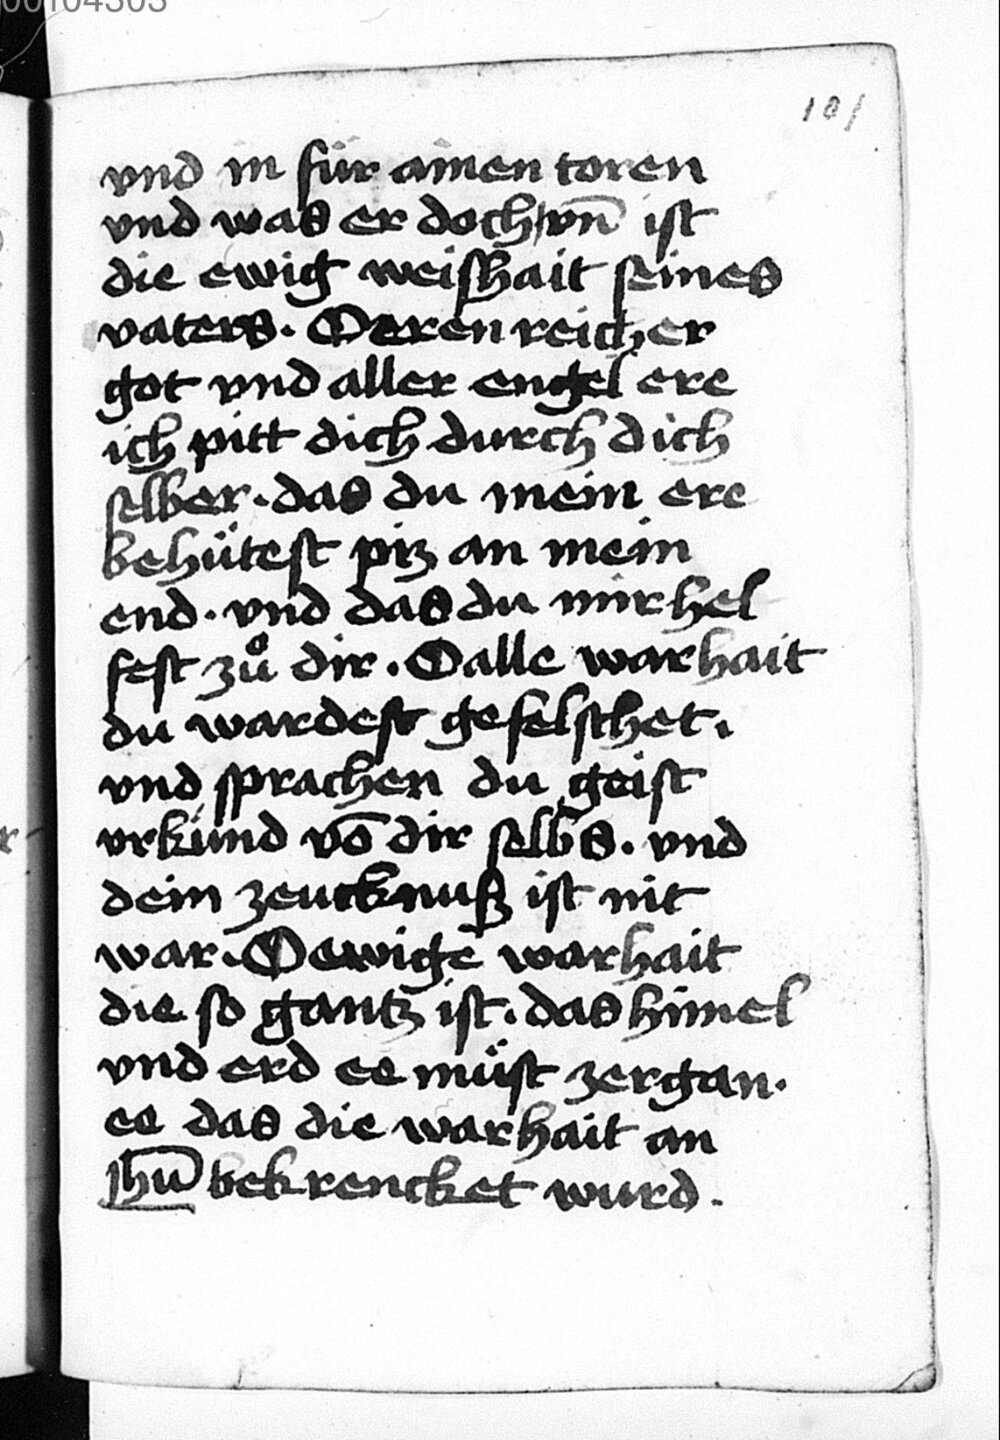 00104303
101
vnd in für ainen toren
vnd was er doch vn̄ ist
die ewig weishait seines
vaters. O eren reicher
got vnd aller engel ere
ich pitt dich durch dich
selber. das du mein ere
behütest piz an mein
end. vnd das du mir hel
fest zů dir. O alle warhait
du wardest gefelschet.
vnd sprachen du geist
vrkünd vō dir selbs. vnd
dein zeucknuß ist nit
war. O ewige warhait
die so gantz ist. das himel
vnd erd ee müst zergan.
ee das die warhait an
jhū bekrencket wurd.